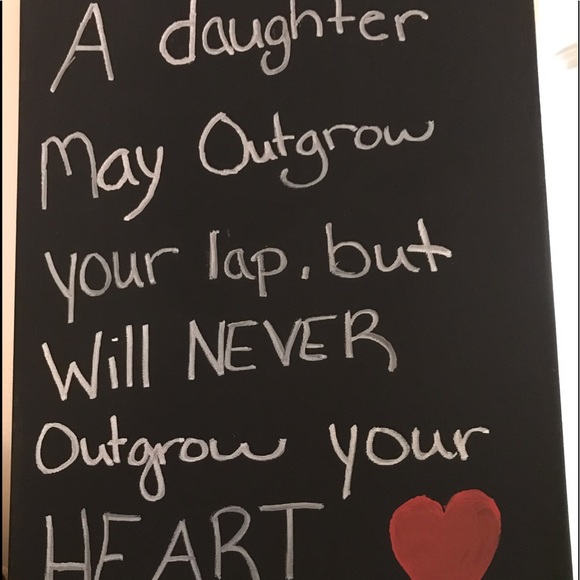 A daughter
May Outgrow
your lap, but
Will NEVER
Outgrow your
HEART